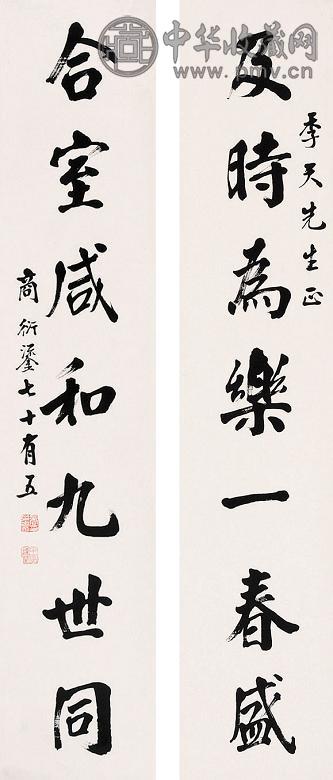 季天先生正
及時為樂一春盛
合室咸和九世同
商衍鎏七十有五
中华收藏网
www.pmv.cn